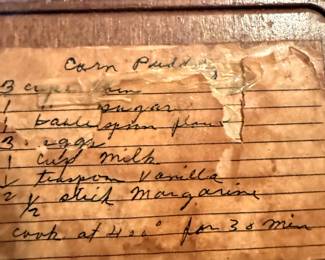 Corn Pudding
3 cups Corn
1 " sugar
1 tablespoon flour
3 eggs
1 cup Milk
1/2 teaspoon Vanilla
1/2 stick Margarine
cook at 400° for 30 min